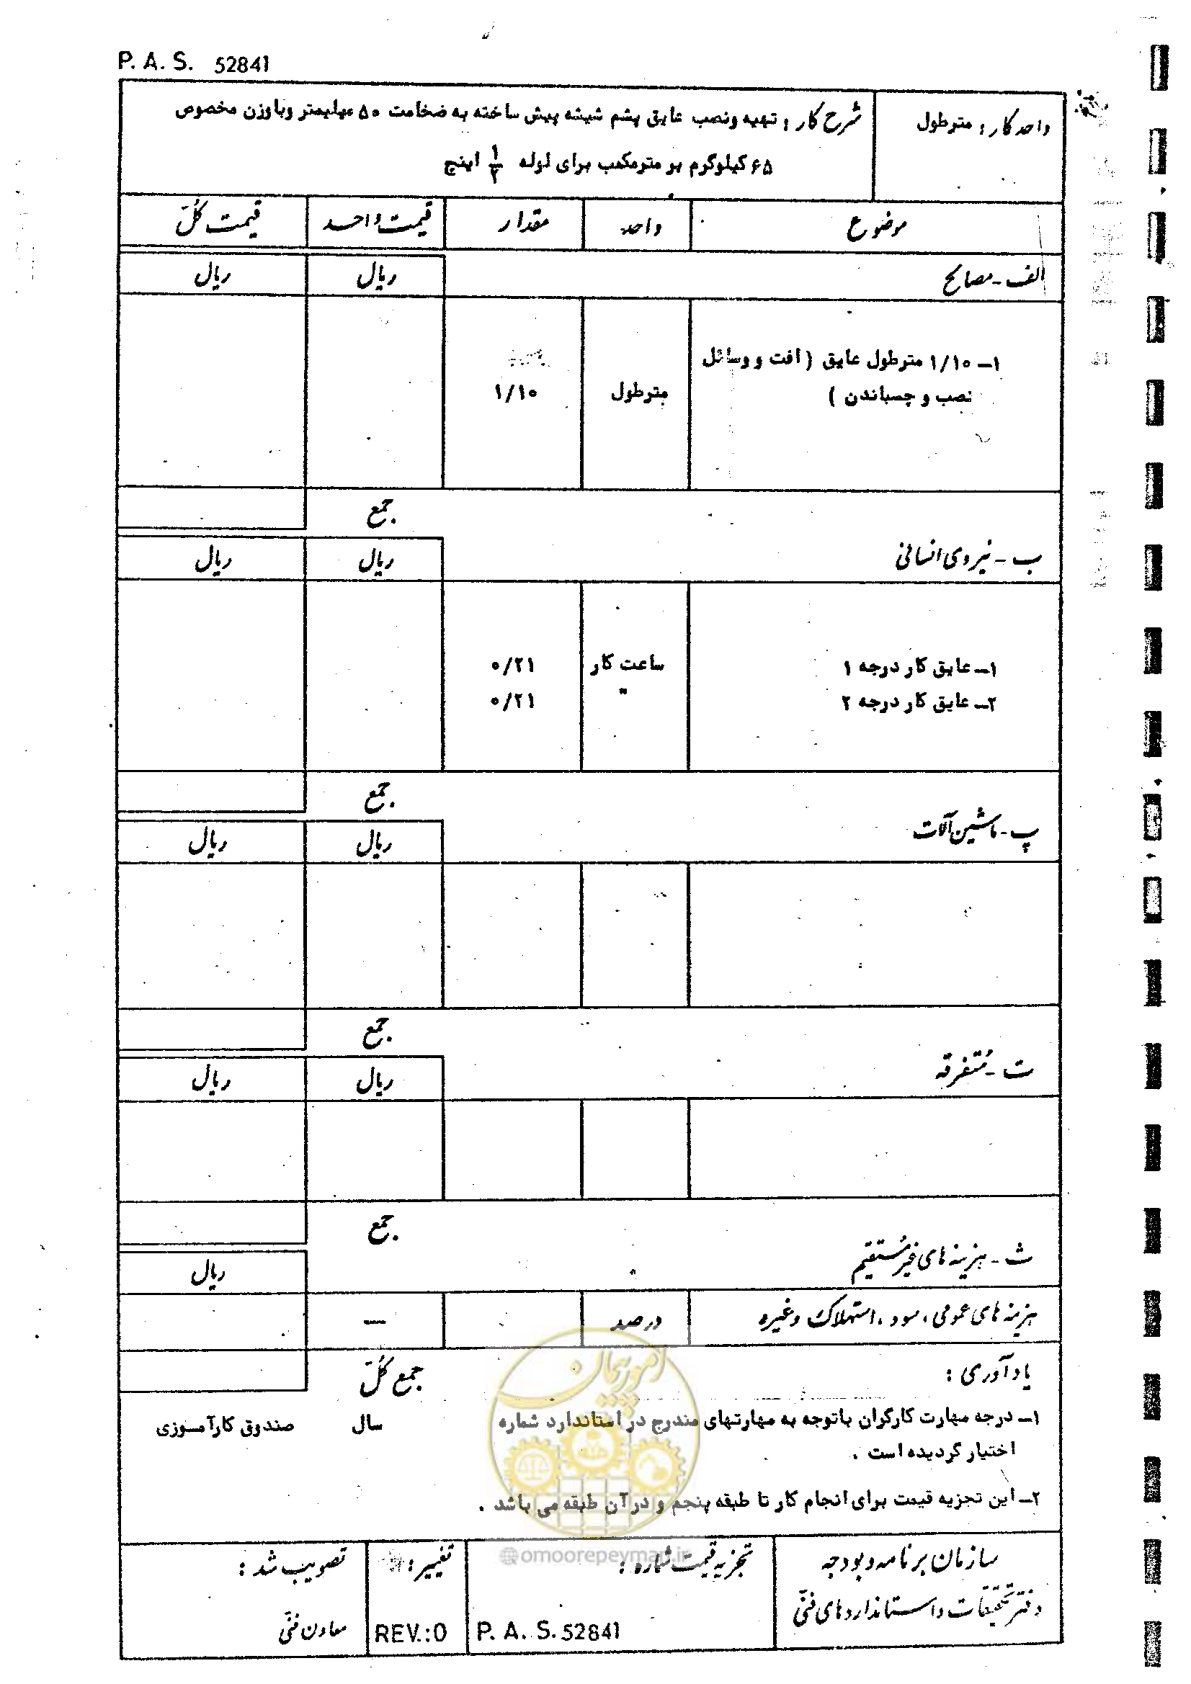 P. A. S. 52841
واحد کار : مترطول
شرح کار : تهیه ونصب عایق پشم شیشه پیش ساخته به ضخامت ۵۰ میلیمتر وباوزن مخصوص
۶۵ کیلوگرم بر مترمکعب برای لوله ۱/۲ اینچ
موضوع واحد مقدار قیمت واحد قیمت کل
الف - مصالح ریال ریال
۱ـ ۱/۱۰ مترطول عایق ( افت و وسائل
نصب و چسباندن ) مترطول ۱/۱۰
جمع
ب - نیروی انسانی ریال ریال
۱ـ عایق کار درجه ۱ ساعت کار ۰/۲۱
۲ـ عایق کار درجه ۲ " ۰/۲۱
جمع
پ - ماشین آلات ریال ریال
جمع
ت - متفرقه ریال ریال
جمع
ث - هزینه های غیرمستقیم ریال
هزینه های عمومی ، سود ، استهلاک وغیره درصد —
یادآوری : جمع کل
۱ـ درجه مهارت کارگران باتوجه به مهارتهای مندرج در استاندارد شماره سال صندوق کارآموزی
اختیار گردیده است .
۲ـ این تجزیه قیمت برای انجام کار تا طبقه پنجم و درآن طبقه می باشد .
امور پیمان
@omoorepeyman.ir
سازمان برنامه وبودجه
دفتر تحقیقات و استانداردهای فنی
تجزیه قیمت شماره :
P. A. S. 52841
تغییر :
REV.:0
تصویب شد :
معاون فنی